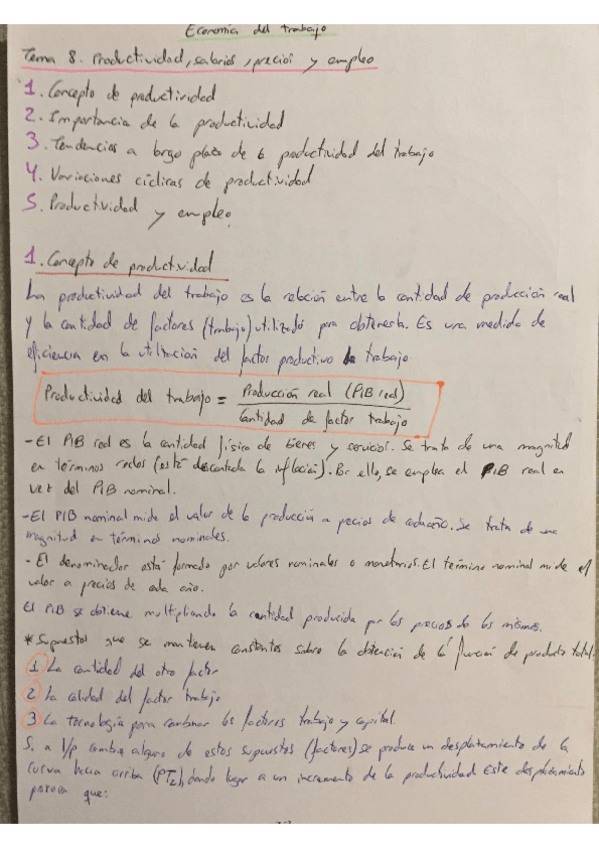 Economía del trabajo
Tema 8. Productividad, salarios, precios y empleo
1. Concepto de productividad
2. Importancia de la productividad
3. Tendencias a largo plazo de la productividad del trabajo
4. Variaciones cíclicas de productividad
5. Productividad y empleo.
1. Concepto de productividad
La productividad del trabajo es la relación entre la cantidad de producción real
y la cantidad de factores (trabajo) utilizado para obtenerla. Es una medida de
eficiencia en la utilización del factor productivo trabajo
Productividad del trabajo = Producción real (PIB real)
Cantidad de factor trabajo
-El PIB real es la cantidad física de bienes y servicios. Se trata de una magnitud
en términos reales (está descontada la inflación). Por ello, se emplea el PIB real en
vez del PIB nominal.
-El PIB nominal mide el valor de la producción a precios de cada año. Se trata de una
magnitud en términos nominales.
- El denominador está formado por valores nominales o monetarios. El término nominal mide el
valor a precios de cada año.
El PIB se obtiene multiplicando la cantidad producida por los precios de los mismos.
*Supuestos que se mantienen constantes sobre la obtención de la función de producto total.
1 La cantidad del otro factor
2 La calidad del factor trabajo
3 La tecnología para combinar los factores trabajo y capital.
Si a l/p cambia alguno de estos supuestos (factores) se produce un desplazamiento de la
curva hacia arriba (PT2), dando lugar a un incremento de la productividad Este desplazamiento
que: